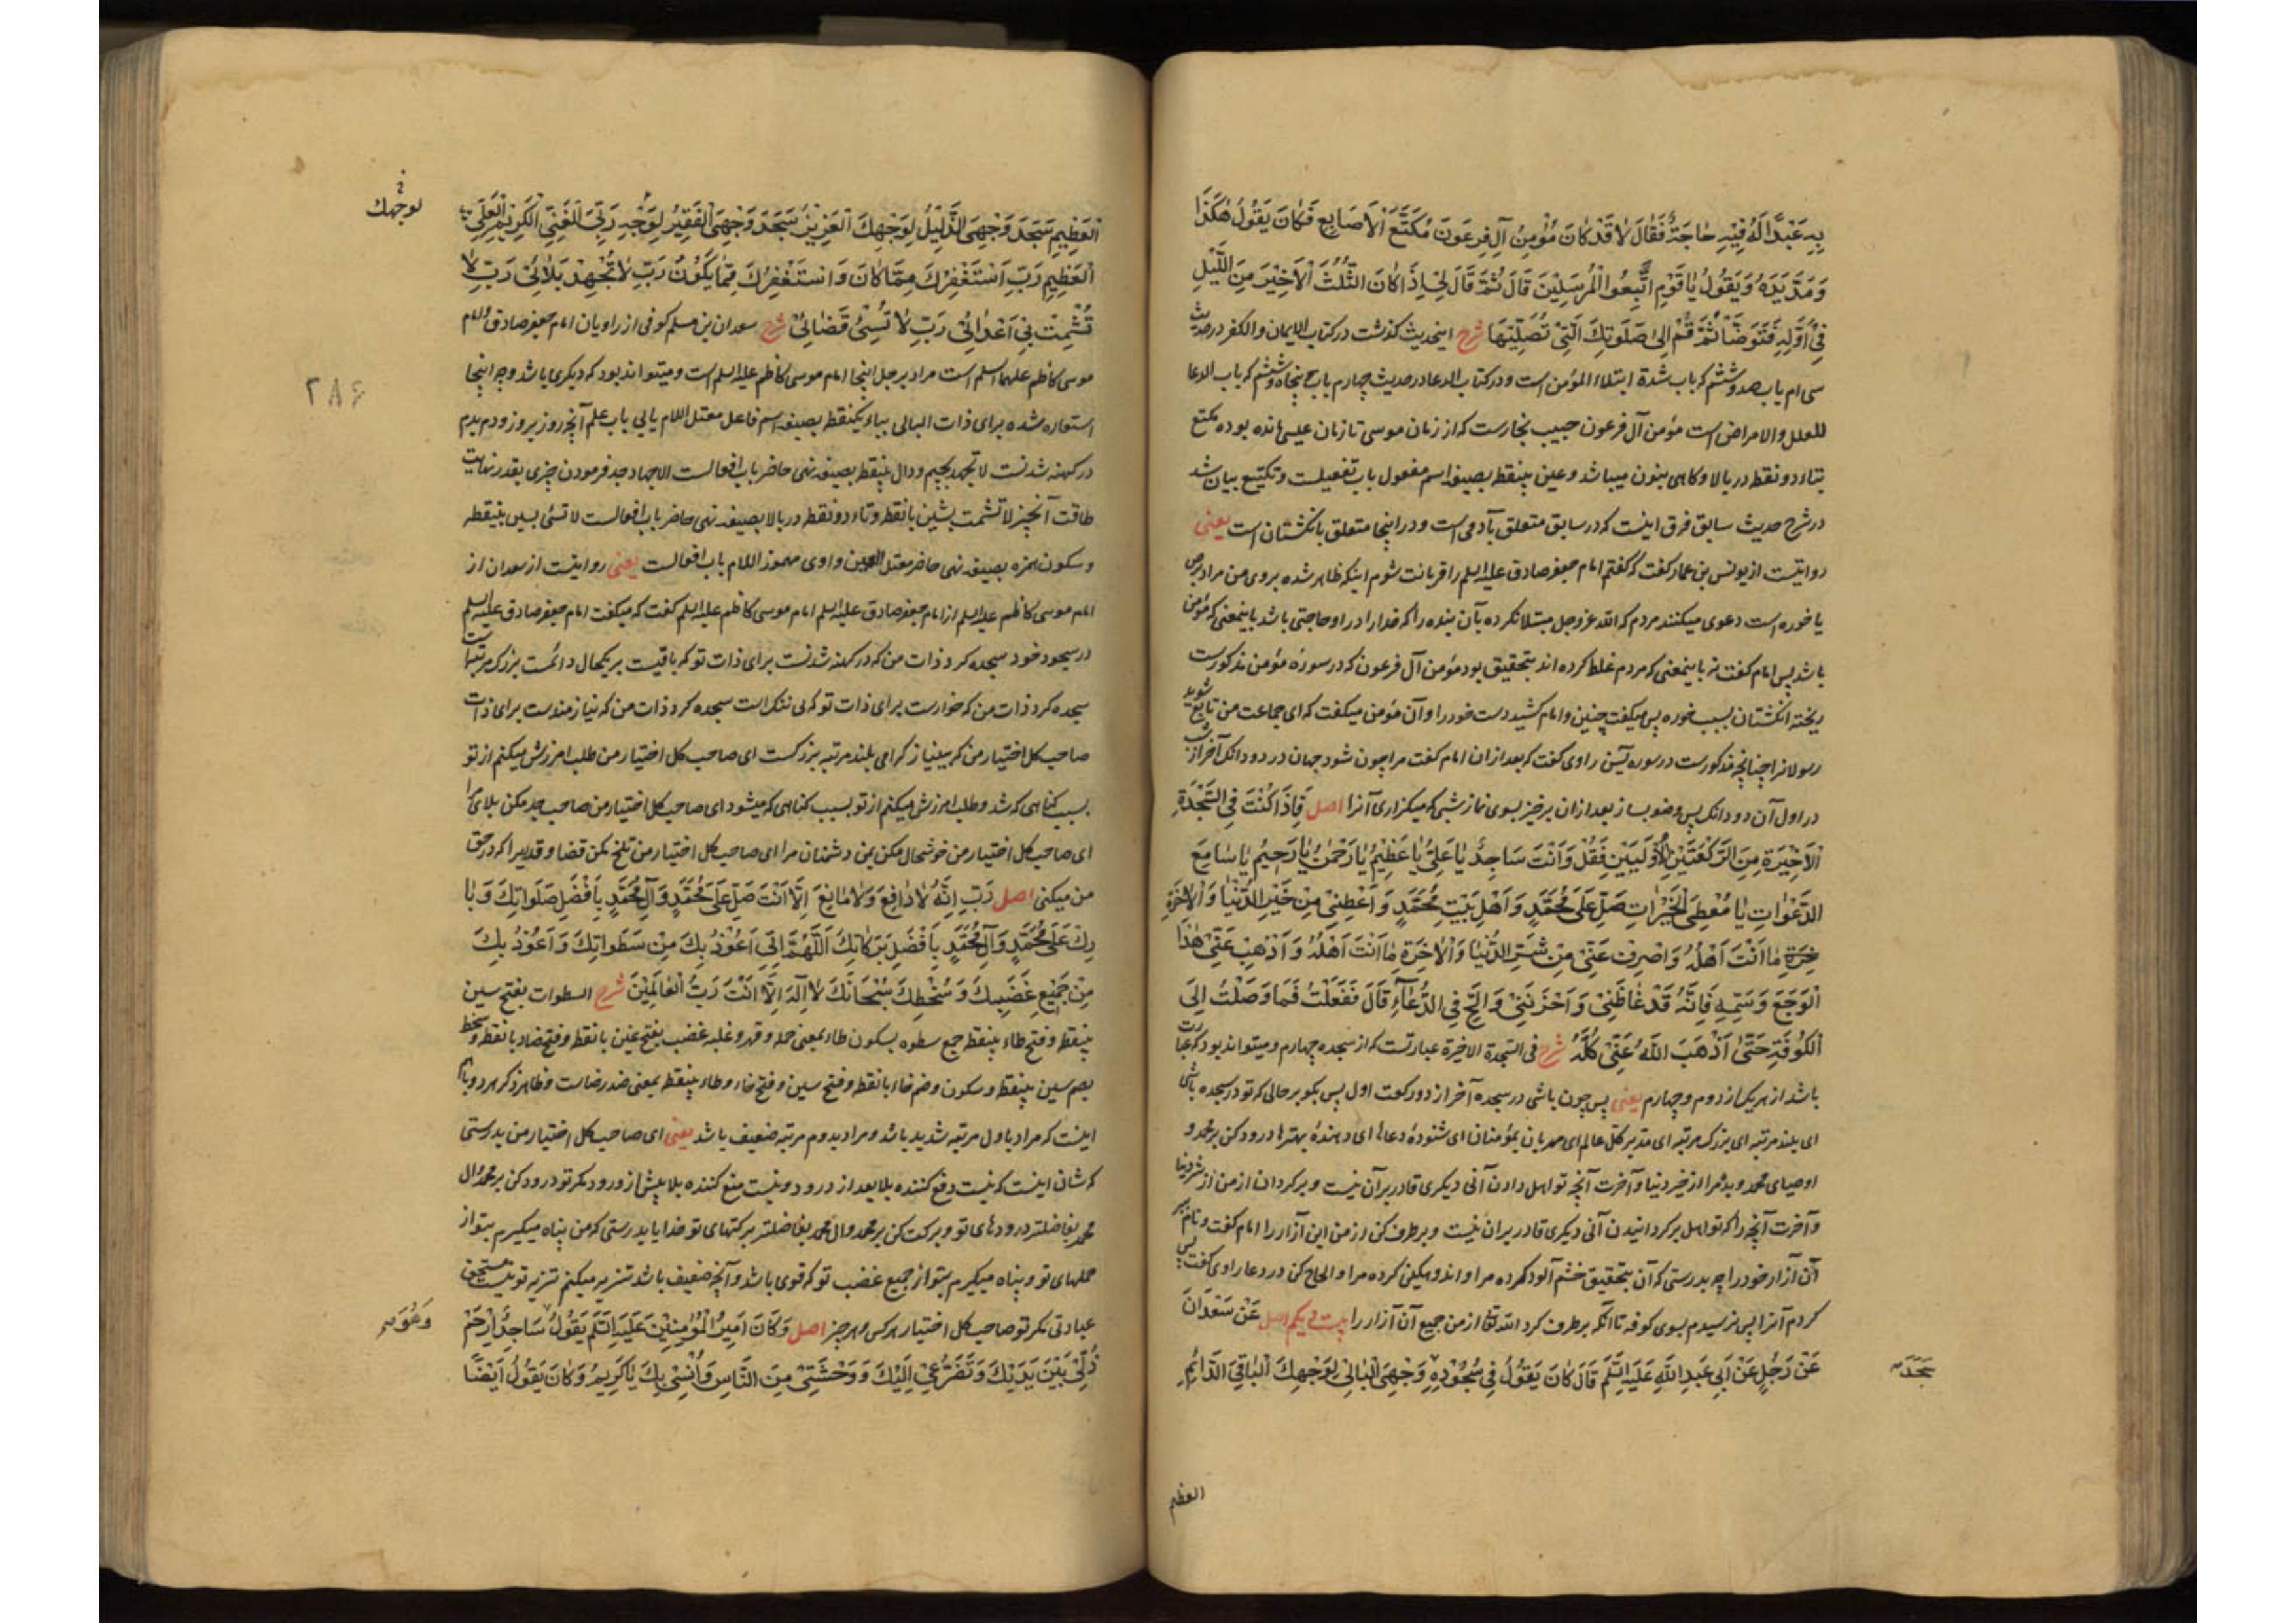 بِهِ عَبْدًا لَهُ فِيهِ حَاجَةٌ فَقَالَ لَا قَدْ كَانَ مُؤْمِنُ آلِ فِرْعَوْنَ مُكَتَّعَ الْأَصَابِعِ فَكَانَ يَقُولُ هٰكَذَا
وَمَدَّ يَدَهُ وَيَقُولُ يَا قَوْمِ اتَّبِعُوا الْمُرْسَلِينَ قَالَ ثُمَّ قَالَ لِي إِذَا كَانَ الثُّلُثُ الْأَخِيرُ مِنَ اللَّيْلِ
فِي أَوَّلِهِ فَتَوَضَّأْ ثُمَّ قُمْ إِلَى صَلَوتِكَ الَّتِي تُصَلِّيهَا شرح اینحدیث گذشت در کتاب الایمان والکفر در حدیث
سی ام باب صد و ششم که باب شدة ابتلاء المؤمن است و در کتاب الدعا در حدیث چهارم باب پنجاه و ششم که باب الدعا
للعلل والامراض است مؤمن آل فرعون حبیب نجارست که از زمان موسی تا زمان عیسی مانده بوده مکتع
بتاء دو نقطه در بالا و کاهی بنون میباشد و عین بینقطه بصیغه اسم مفعول باب تفعیلست و تکتیع بیان شد
در شرح حدیث سابق فرق اینست که در سابق متعلق بآدمی است و در اینجا متعلق بانکشتان است یعنی
روایتست از یونس بن عمار کفت که کفتم امام جعفر صادق علیه السلم را قربانت شوم اینکه ظاهر شده بروی من مراد برص
یا خوره است دعوی میکنند مردم که الله عز و جل مبتلا نکرده بآن بنده را که خدا را در او حاجتی باشد باینمعنی که مؤمن
باشد پس امام کفت نه باینمعنی که مردم غلط کرده اند بتحقیق بود مؤمن آل فرعون که در سورهٔ مؤمن مذکورست
ریخته انکشتان بسبب خوره پس میکفت چنین و امام کشید دست خود را و آن مؤمن میکفت که ای جماعت من تابع شوید
رسولانرا چنانچه مذکورست در سوره یس راوی کفت که بعد از ان امام کفت مرا چون شود جهان در دو دانک آخر از شب
در اول آن دو دانک پس وضو بساز بعد از ان برخیز بسوی نماز شبی که میکزاری آنرا اصل فَإِذَا كُنْتَ فِي السَّجْدَةِ
الْأَخِيرَةِ مِنَ الرَّكْعَتَيْنِ الْأُولَيَيْنِ فَقُلْ وَأَنْتَ سَاجِدٌ يَا عَلِيُّ يَا عَظِيمُ يَا رَحْمٰنُ يَا رَحِيمُ يَا سَامِعَ
الدَّعَوَاتِ يَا مُعْطِيَ الْخَيْرَاتِ صَلِّ عَلَى مُحَمَّدٍ وَأَهْلِ بَيْتِ مُحَمَّدٍ وَأَعْطِنِي مِنْ خَيْرِ الدُّنْيَا وَالْآخِرَةِ
خِرَةِ مَا أَنْتَ أَهْلُهُ وَاصْرِفْ عَنِّي مِنْ شَرِّ الدُّنْيَا وَالْآخِرَةِ مَا أَنْتَ أَهْلُهُ وَأَذْهِبْ عَنِّي هٰذَا
الْوَجَعَ وَسَمِّهِ فَإِنَّهُ قَدْ غَاظَنِي وَأَحْزَنَنِي وَأَلِحَّ فِي الدُّعَاءِ قَالَ فَفَعَلْتُ فَمَا وَصَلْتُ إِلَى
الْكُوفَةِ حَتَّى أَذْهَبَ اللَّهُ عَنِّي كُلَّهُ شرح فی السجدة الاخیرة عبارتست که از سجده چهارم و میتواند بود که عبارت
باشد از هر یک از دوم و چهارم یعنی پس چون باشی در سجده آخر از دو رکعت اول پس بکو بر حالی که تو در سجده باشی
ای بلند مرتبه ای بزرک مرتبه ای مدبر کل عالم ای مهربان بمؤمنان ای شنودهٔ دعاهای ای دهندهٔ بهترها درود کن بر محمد و
اوصیای محمد و بده مرا از خیر دنیا و آخرت آنچه تو اهل دادن آنی دیکری قادر بر آن نیست و برکردان از من از شر دنیا
و آخرت آنچه را که تو اهل برکردانیدن آنی دیکری قادر بر ان نیست و برطرف کن از من این آزار را امام کفت و نام بر
آن آزار خود را چه بدرستی که آن بتحقیق خشم آلود کرده مرا و اندوهکین کرده مرا و الحاح کن در دعا راوی کفت پس
کردم آنرا پس نرسیدم بسوی کوفه تا آنکه برطرف کرد الله تعالی از من جمیع آن آزار را بیست و یکم اصل عَنْ سَعْدَانَ
عَنْ رَجُلٍ عَنْ أَبِي عَبْدِ اللَّهِ عَلَيْهِ السَّلَمُ قَالَ كَانَ يَقُولُ فِي سُجُودِهِ وَجْهِيَ الْبَالِي لِوَجْهِكَ الْبَاقِي الدَّائِمِ
سَجَدَ
العظیم
لوجهك
الْعَظِيمِ سَجَدَ وَجْهِيَ الذَّلِيلُ لِوَجْهِكَ الْعَزِيزِ سَجَدَ وَجْهِيَ الْفَقِيرُ لِوَجْهِ رَبِّيَ الْغَنِيِّ الْكَرِيمِ الْعَلِيِّ
الْعَظِيمِ رَبِّ أَسْتَغْفِرُكَ مِمَّا كَانَ وَأَسْتَغْفِرُكَ مِمَّا يَكُونُ رَبِّ لَا تُجْهِدْ بَلَائِي رَبِّ لَا
تُشْمِتْ بِي أَعْدَائِي رَبِّ لَا تُسِئْ قَضَائِي شرح سعدان بن مسلم کوفی از راویان امام جعفر صادق و امام
موسی کاظم علیهما السلم است مراد برجل اینجا امام موسی کاظم علیه السلم است و میتواند بود که دیکری باشد وجه اینجا
استعاره شده برای ذات البالی بباء یکنقطه بصیغه اسم فاعل معتل اللام یائی باب علم آنچه روز بروز و دم بدم
در کهنه شدنست لا تجهد بجیم و دال بینقطه بصیغه نهی حاضر باب افعالست الاجهاد جد فرمودن چیزی بقدر نهایت
طاقت آنچیز لا تشمت بشین بانقطه و تاء دو نقطه در بالا بصیغه نهی حاضر باب افعالست لا تسئ بسین بینقطه
و سکون همزه بصیغه نهی حاضر معتل العین واوی مهموز اللام باب افعالست یعنی روایتست از سعدان از
امام موسی کاظم علیه السلم از امام جعفر صادق علیه السلم امام موسی کاظم علیه السلم کفت که میکفت امام جعفر صادق علیه السلم
در سجود خود سجده کرد ذات من که در کهنه شدنست برای ذات تو که باقیست بر یکحال دائمست بزرک مرتبه است
سجده کرد ذات من که خوارست برای ذات تو که بی ننک است سجده کرد ذات من که نیازمندست برای ذات
صاحب کل اختیار من که بینیاز کرامی بلند مرتبه بزرکست ای صاحب کل اختیار من طلب امرزش میکنم از تو
بسبب کناهی که شد و طلب امرزش میکنم از تو بسبب کناهی که میشود ای صاحب کل اختیار من صاحب جد مکن بلای مرا
ای صاحب کل اختیار من خوشحال مکن بمن دشمنان مرا ای صاحب کل اختیار من تلخ مکن قضا و قدر را که در حق
من میکنی اصل رَبِّ إِنَّهُ لَا دَافِعَ وَلَا مَانِعَ إِلَّا أَنْتَ صَلِّ عَلَى مُحَمَّدٍ وَآلِ مُحَمَّدٍ بِأَفْضَلِ صَلَوَاتِكَ وَبَا
رِكْ عَلَى مُحَمَّدٍ وَآلِ مُحَمَّدٍ بِأَفْضَلِ بَرَكَاتِكَ اللَّهُمَّ إِنِّي أَعُوذُ بِكَ مِنْ سَطَوَاتِكَ وَأَعُوذُ بِكَ
مِنْ جَمِيعِ غَضَبِكَ وَسُخْطِكَ سُبْحَانَكَ لَا إِلٰهَ إِلَّا أَنْتَ رَبُّ الْعَالَمِينَ شرح السطوات بفتح سین
بینقطه و فتح طاء بینقطه جمع سطوه بسکون طاء بمعنی حمله و قهر و غلبه غضب بفتح غین بانقطه و فتح ضاد بانقطه و سخط
بضم سین بینقطه و سکون و ضم خاء بانقطه و فتح سین و فتح خاء و طاء بینقطه بمعنی ضد رضاست و ظاهر ذکر هر دو با هم
اینست که مراد باول مرتبه شدید باشد و مراد بدوم مرتبه ضعیف باشد یعنی ای صاحب کل اختیار من بدرستی
که شان اینست که نیست دفع کننده بلا بعد از ورود و نیست منع کننده بلا پیش از ورود مکر تو درود کن بر محمد و ال
محمد بفاضلتر درودهای تو و برکت کن بر محمد و ال محمد بفاضلتر برکتهای تو خدایا بدرستی که من پناه میکیرم بتو از
حملهای تو و پناه میکیرم بتو از جمیع غضب تو که قوی باشد و آنچه ضعیف باشد تنزیه میکنم تنزیه تو نیست مستحق
عبادتی مکر تو صاحب کل اختیار هر کس و هر چیز اصل وَكَانَ أَمِيرُ الْمُؤْمِنِينَ عَلَيْهِ السَّلَمُ يَقُولُ سَاجِدٌ ارْحَمْ
وَهُوَ
ذُلِّي بَيْنَ يَدَيْكَ وَتَضَرُّعِي إِلَيْكَ وَوَحْشَتِي مِنَ النَّاسِ وَأُنْسِي بِكَ يَا كَرِيمُ وَكَانَ يَقُولُ أَيْضًا
۲۸۶